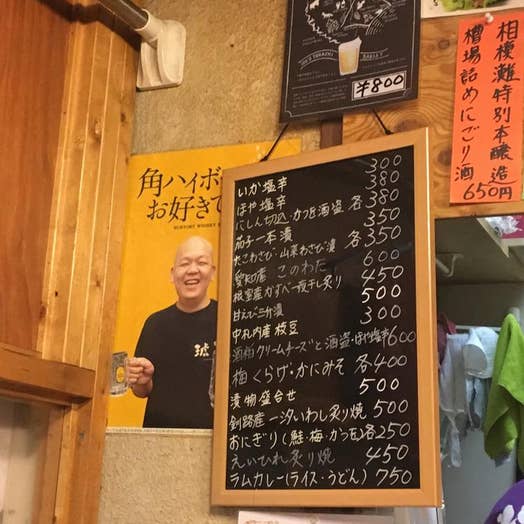 ¥800
相模灘特別本醸造
槽場詰めにごり酒
650円
角ハイボー
お好きで
いか塩辛 300
ほや塩辛 380
にしん切込・かつを酒盗 各380
茄子一本漬 350
たこわさび・山菜わさび漬 各350
愛知産 このわた 600
根室産かすべ一夜干し炙り 450
甘えび三升漬 500
中札内産 枝豆 300
酒粕クリームチーズと酒盗・ほや塩辛 600
梅くらげ・かにみそ 各400
漬物盛合せ 500
釧路産 一汐いわし炙り焼 500
おにぎり(鮭・梅・かつを)各250
えいひれ炙り焼 450
ラムカレー(ライス・うどん) 750